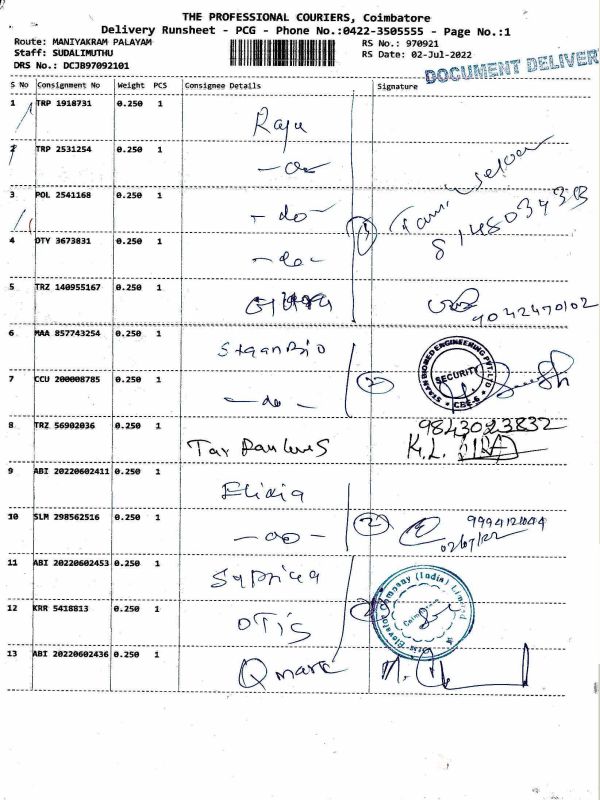 THE PROFESSIONAL COURIERS, Coimbatore
Delivery Runsheet - PCG - Phone No.:0422-3505555 - Page No.:1
Route: MANIYAKRAM PALAYAM
Staff: SUDALIMUTHU
DRS No.: DCJB97092101
RS No.: 970921
RS Date: 02-Jul-2022
DOCUMENT DELIVER
S No Consignment No Weight PCS Consignee Details Signature
1 TRP 1918731 0.250 1
Raju
2 TRP 2531254 0.250 1
-do-
3 POL 2541168 0.250 1
-do-
8148034313
4 DTY 3673831 0.250 1
-do-
5 TRZ 140955167 0.250 1
9042470102
6 MAA 857743254 0.250 1
StaanBio
STAAN BIOMED ENGINEERING PVT. LTD
SECURITY
CBE-6
7 CCU 200008785 0.250 1
-do-
2
8 TRZ 56902036 0.250 1
9843023832
Tax
K.L.
9 ABI 20220602411 0.250 1
Elixia
10 SLM 298562516 0.250 1
-do-
2
02/07/22
11 ABI 20220602453 0.250 1
12 KRR 5418813 0.250 1
OTIS
Otis Elevator Company (India) Limited
Coimbatore
13 ABI 20220602436 0.250 1
Qmark